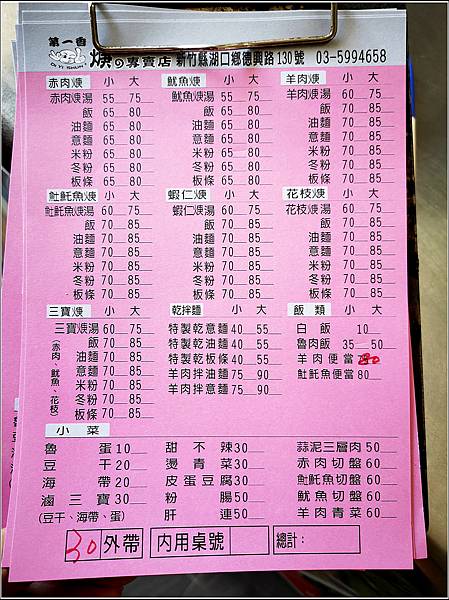 第一香
焿の專賣店 新竹縣湖口鄉德興路130號 03-5994658
赤肉焿 小 大
赤肉焿湯 55 75
飯 65 80
油麵 65 80
意麵 65 80
米粉 65 80
冬粉 65 80
板條 65 80
魷魚焿 小 大
魷魚焿湯 55 75
飯 65 80
油麵 65 80
意麵 65 80
米粉 65 80
冬粉 65 80
板條 65 80
羊肉焿 小 大
羊肉焿湯 60 75
飯 70 85
油麵 70 85
意麵 70 85
米粉 70 85
冬粉 70 85
板條 70 85
魠魚焿 小 大
魠魚焿湯 60 75
飯 70 85
油麵 70 85
意麵 70 85
米粉 70 85
冬粉 70 85
板條 70 85
蝦仁焿 小 大
蝦仁焿湯 60 75
飯 70 85
油麵 70 85
意麵 70 85
米粉 70 85
冬粉 70 85
板條 70 85
花枝焿 小 大
花枝焿湯 60 75
飯 70 85
油麵 70 85
意麵 70 85
米粉 70 85
冬粉 70 85
板條 70 85
三寶焿 小 大
三寶焿湯 60 75
(赤肉、魷魚、花枝)
飯 70 85
油麵 70 85
意麵 70 85
米粉 70 85
冬粉 70 85
板條 70 85
乾拌麵 小 大
特製乾意麵 40 55
特製乾油麵 40 55
特製乾板條 40 55
羊肉拌油麵 75 90
羊肉拌意麵 75 90
飯類 小 大
白飯 10
魯肉飯 35 50
羊肉便當
魠魚便當 80
小菜
魯蛋 10
豆干 20
海帶 20
滷三寶 30
(豆干、海帶、蛋)
甜不辣 30
燙青菜 30
皮蛋豆腐 30
粉腸 50
肝連 50
蒜泥三層肉 50
赤肉切盤 60
魠魚切盤 60
魷魚切盤 60
羊肉青菜 60
30 外帶 內用桌號 總計：